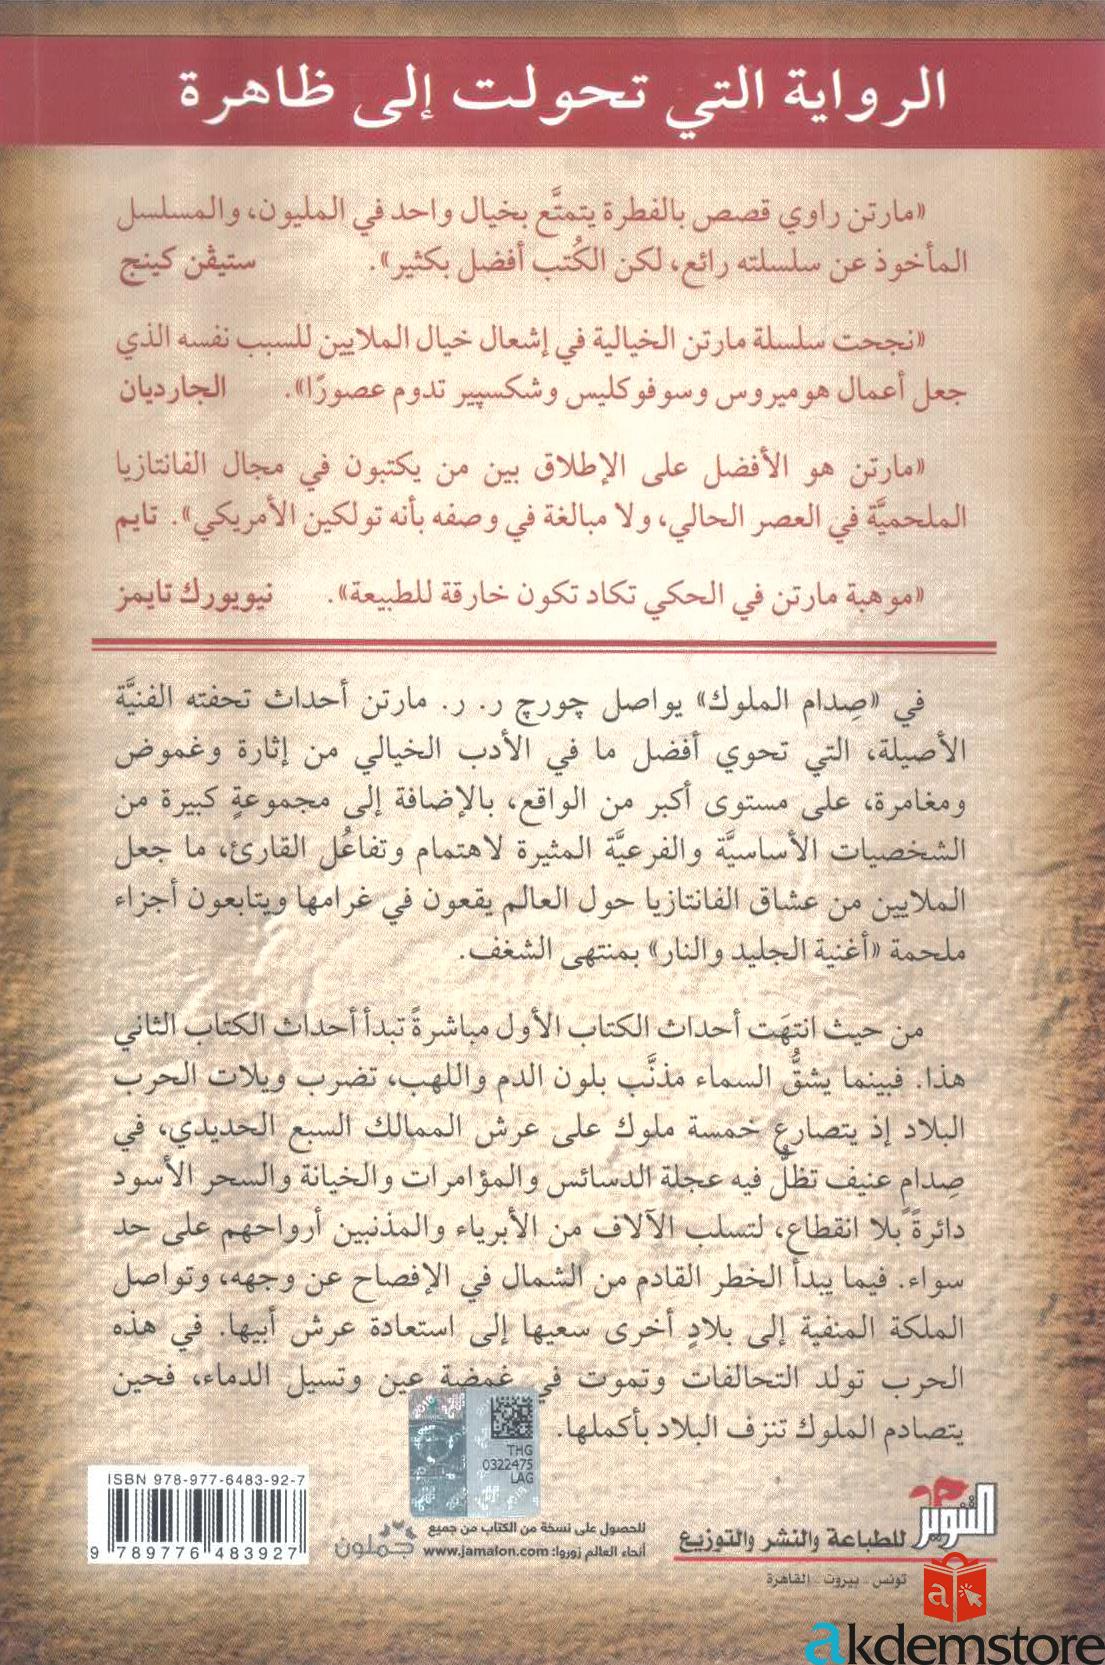 الرواية التي تحولت إلى ظاهرة
«مارتن راوي قصص بالفطرة يتمتَّع بخيال واحد في المليون، والمسلسل
المأخوذ عن سلسلته رائع، لكن الكُتب أفضل بكثير». ستيڤن كينج
«نجحت سلسلة مارتن الخيالية في إشعال خيال الملايين للسبب نفسه الذي
جعل أعمال هوميروس وسوفوكليس وشكسپير تدوم عصورًا». الجارديان
«مارتن هو الأفضل على الإطلاق بين من يكتبون في مجال الفانتازيا
الملحميَّة في العصر الحالي، ولا مبالغة في وصفه بأنه تولكين الأمريكي». تايم
«موهبة مارتن في الحكي تكاد تكون خارقة للطبيعة». نيويورك تايمز
في «صِدام الملوك» يواصل چورچ ر. ر. مارتن أحداث تحفته الفنيَّة
الأصيلة، التي تحوي أفضل ما في الأدب الخيالي من إثارة وغموض
ومغامرة، على مستوى أكبر من الواقع، بالإضافة إلى مجموعةٍ كبيرة من
الشخصيات الأساسيَّة والفرعيَّة المثيرة لاهتمام وتفاعُل القارئ، ما جعل
الملايين من عشاق الفانتازيا حول العالم يقعون في غرامها ويتابعون أجزاء
ملحمة «أغنية الجليد والنار» بمنتهى الشغف.
من حيث انتهَت أحداث الكتاب الأول مباشرةً تبدأ أحداث الكتاب الثاني
هذا. فبينما يشقُّ السماء مذنَّب بلون الدم واللهب، تضرب ويلات الحرب
البلاد إذ يتصارع خمسة ملوك على عرش الممالك السبع الحديدي، في
صِدامٍ عنيف تظلُّ فيه عجلة الدسائس والمؤامرات والخيانة والسحر الأسود
دائرةً بلا انقطاع، لتسلب الآلاف من الأبرياء والمذنبين أرواحهم على حد
سواء. فيما يبدأ الخطر القادم من الشمال في الإفصاح عن وجهه، وتواصل
الملكة المنفية إلى بلادٍ أخرى سعيها إلى استعادة عرش أبيها. في هذه
الحرب تولد التحالفات وتموت في غمضة عين وتسيل الدماء، فحين
يتصادم الملوك تنزف البلاد بأكملها.
THG
0322475
LAG
ISBN 978-977-6483-92-7
9 789776 483927
للحصول على نسخة من الكتاب من جميع
أنحاء العالم زوروا: www.jamalon.com
جملون
التنوير
للطباعة والنشر والتوزيع
تونس - بيروت - القاهرة
a
akdemstore